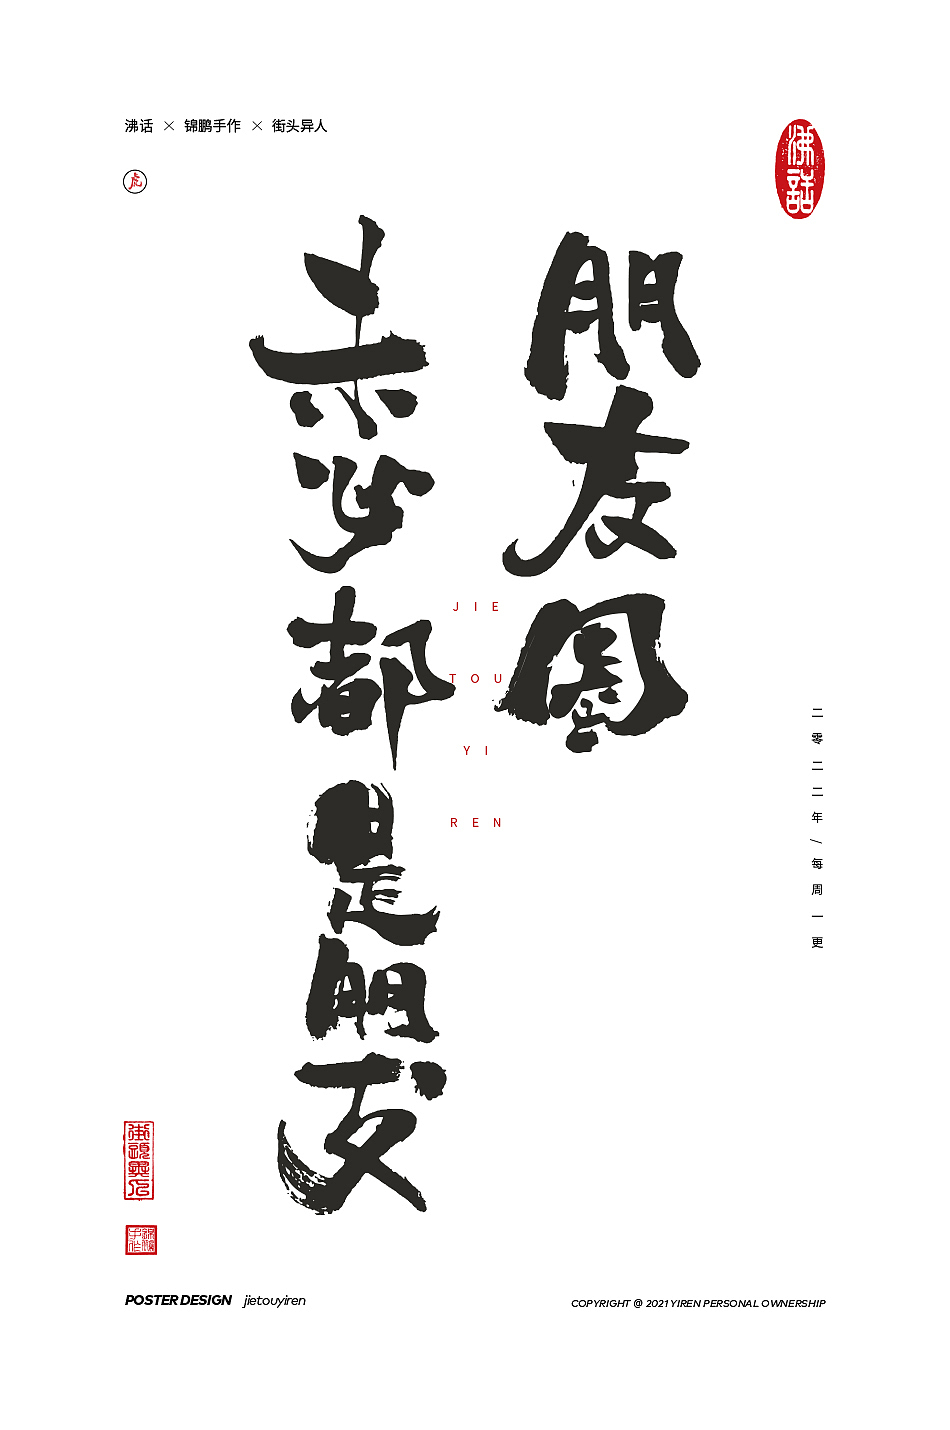 沸话 × 锦鹏手作 × 街头异人
虎
沸話
朋友圈
未必都是朋友
JIE
TOU
YI
REN
二零二二年/每周一更
街頭異人
POSTER DESIGN jietouyiren
COPYRIGHT @ 2021 YIREN PERSONAL OWNERSHIP